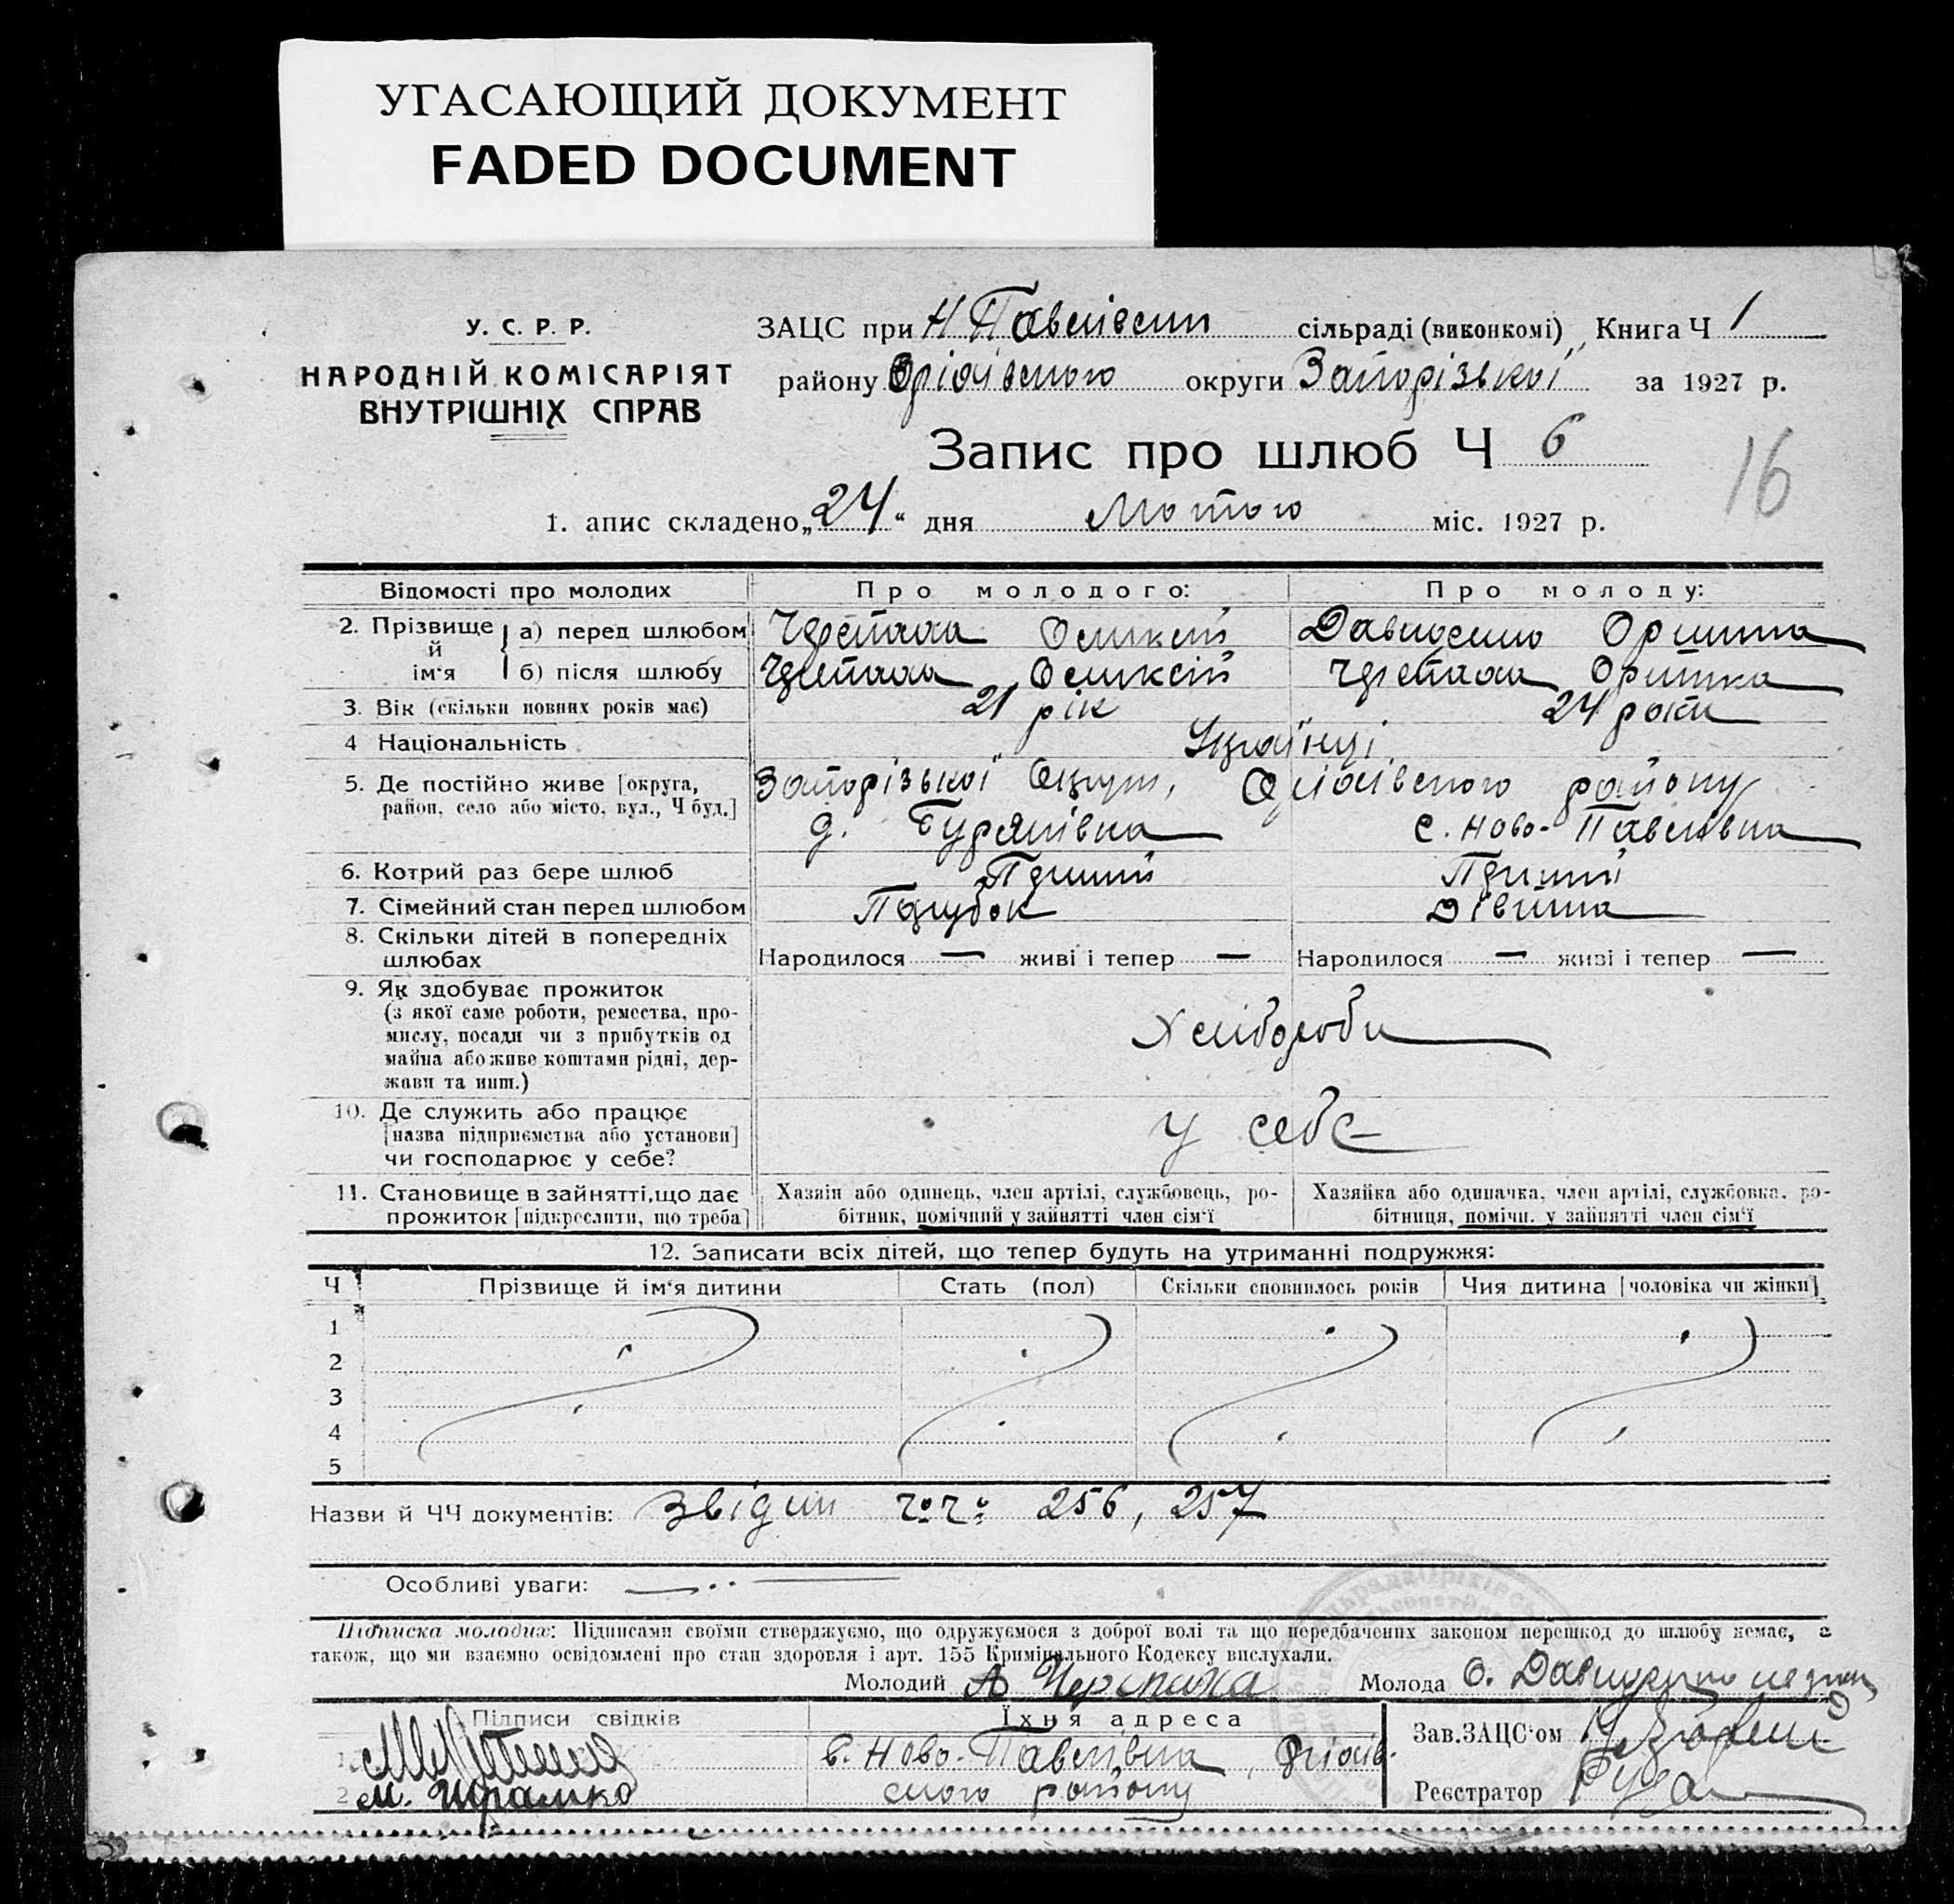 УГАСАЮЩИЙ ДОКУМЕНТ
FADED DOCUMENT
У. С. Р. Р.
НАРОДНІЙ КОМІСАРІЯТ
ВНУТРІШНІХ СПРАВ
ЗАЦС при Н Павлівськ сільраді (виконкомі) Книга Ч 1
району Оріхівського округи Запорізької за 1927 р.
Запис про шлюб Ч 6
16
1. апис складено „24“ дня Лютого міс. 1927 р.
Відомості про молодих
Про молодого:
Про молоду:
2. Прізвище й ім‘я
а) перед шлюбом
Черепаха Олексій
Давиденко Оришка
б) після шлюбу
Черепаха Олексій
Черепаха Оришка
3. Вік (скільки повних років має)
21 рік
24 роки
4 Національність
Українці
5. Де постійно живе [округа,
район, село або місто, вул., Ч буд.]
Запорізької Округи, Оріхівського району
д. Бурянівка
с. Ново-Павлівка
6. Котрий раз бере шлюб
Перший
Перший
7. Сімейний стан перед шлюбом
Парубок
Дівчина
8. Скільки дітей в попередніх
шлюбах
Народилося — живі і тепер —
Народилося — живі і тепер —
9. Як здобуває прожиток
(з якої саме роботи, ремества, про-
мислу, посади чи з прибутків од
майна або живе коштами рідні, дер-
жави та инш.)
Хлібороби
10. Де служить або працює
[назва підприємства або установи]
чи господарює у себе?
у себе
11. Становище в зайнятті, що дає
прожиток [підкреслити, що треба]
Хазяїн або одинець, член артілі, службовець, ро-
бітник, помічний у зайнятті член сім‘ї
Хазяйка або одиначка, член артілі, службовка, ро-
бітниця, помічн. у зайнятті член сім‘ї
12. Записати всіх дітей, що тепер будуть на утриманні подружжя:
Ч
Прізвище й ім‘я дитини
Стать (пол)
Скільки сповнилось років
Чия дитина [чоловіка чи жінки]
1
2
3
4
5
Назви й ЧЧ документів: Звідки ч.ч. 256, 257
Особливі уваги:
Підписка молодих: Підписами своїми стверджуємо, що одружуємося з доброї волі та що передбачених законом перешкод до шлюбу немає, а
також, що ми взаємно освідомлені про стан здоровля і арт. 155 Кримінального Кодексу вислухали.
Молодий А Черепаха
Молода О. Давиденко
Підписи свідків
Їхня адреса
1
2 М. Шрамко
с. Ново-Павлівка, Оріхів-
ського району
Зав. ЗАЦС‘ом
Реєстратор